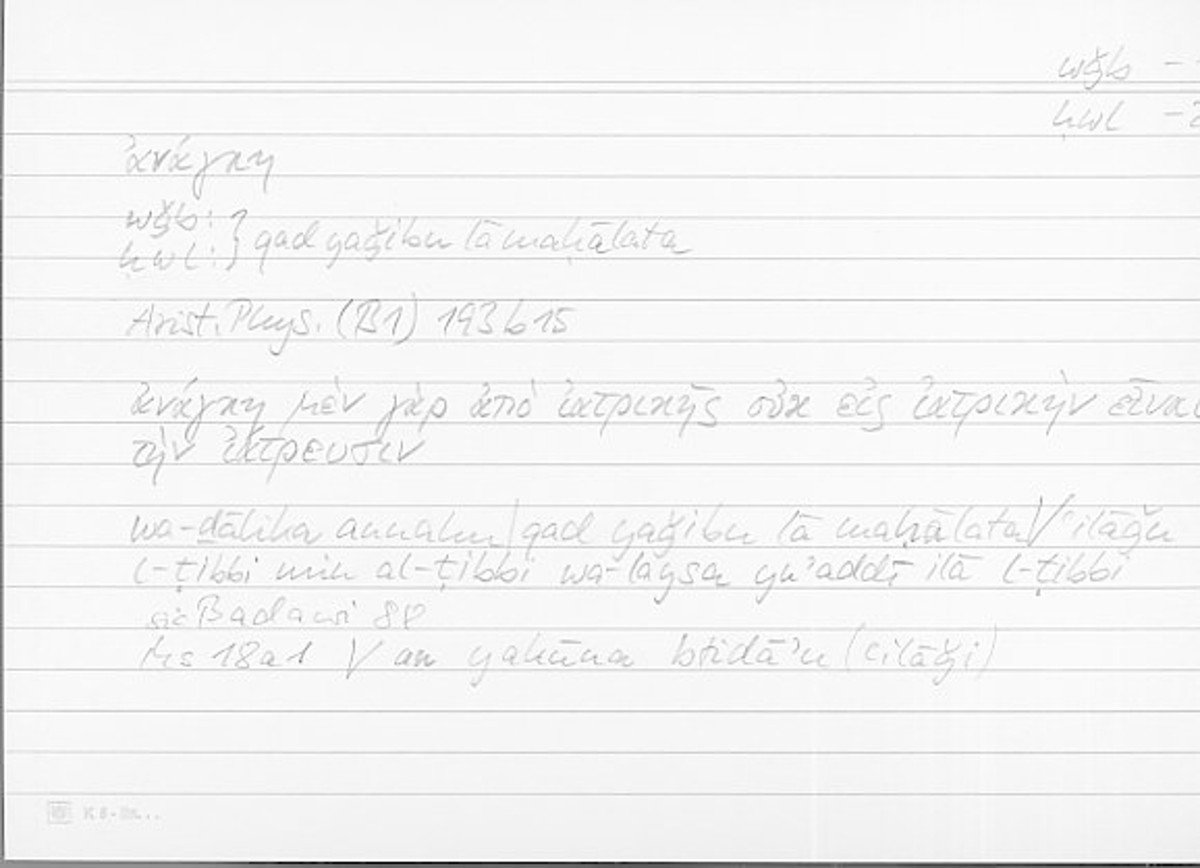 wǧb -
ḥwl - 2
ἀνάγκη
wǧb: }
ḥwl: } qad yaǧibu lā maḥālata
Arist. Phys. (B1) 193b15
ἀνάγκη μὲν γὰρ ἀπὸ ἰατρικῆς οὐκ εἰς ἰατρικὴν εἶναι
τὴν ἰάτρευσιν
wa-ḏālika annahu | qad yaǧibu lā maḥālata | √ ʿilāǧu
l-ṭibbi min al-ṭibbi wa-laysa yuʾaddī ilā l-ṭibbi
sic Badawi 88
Ms 18a1 √ an yakūna btidāʾu (ʿilāǧi)